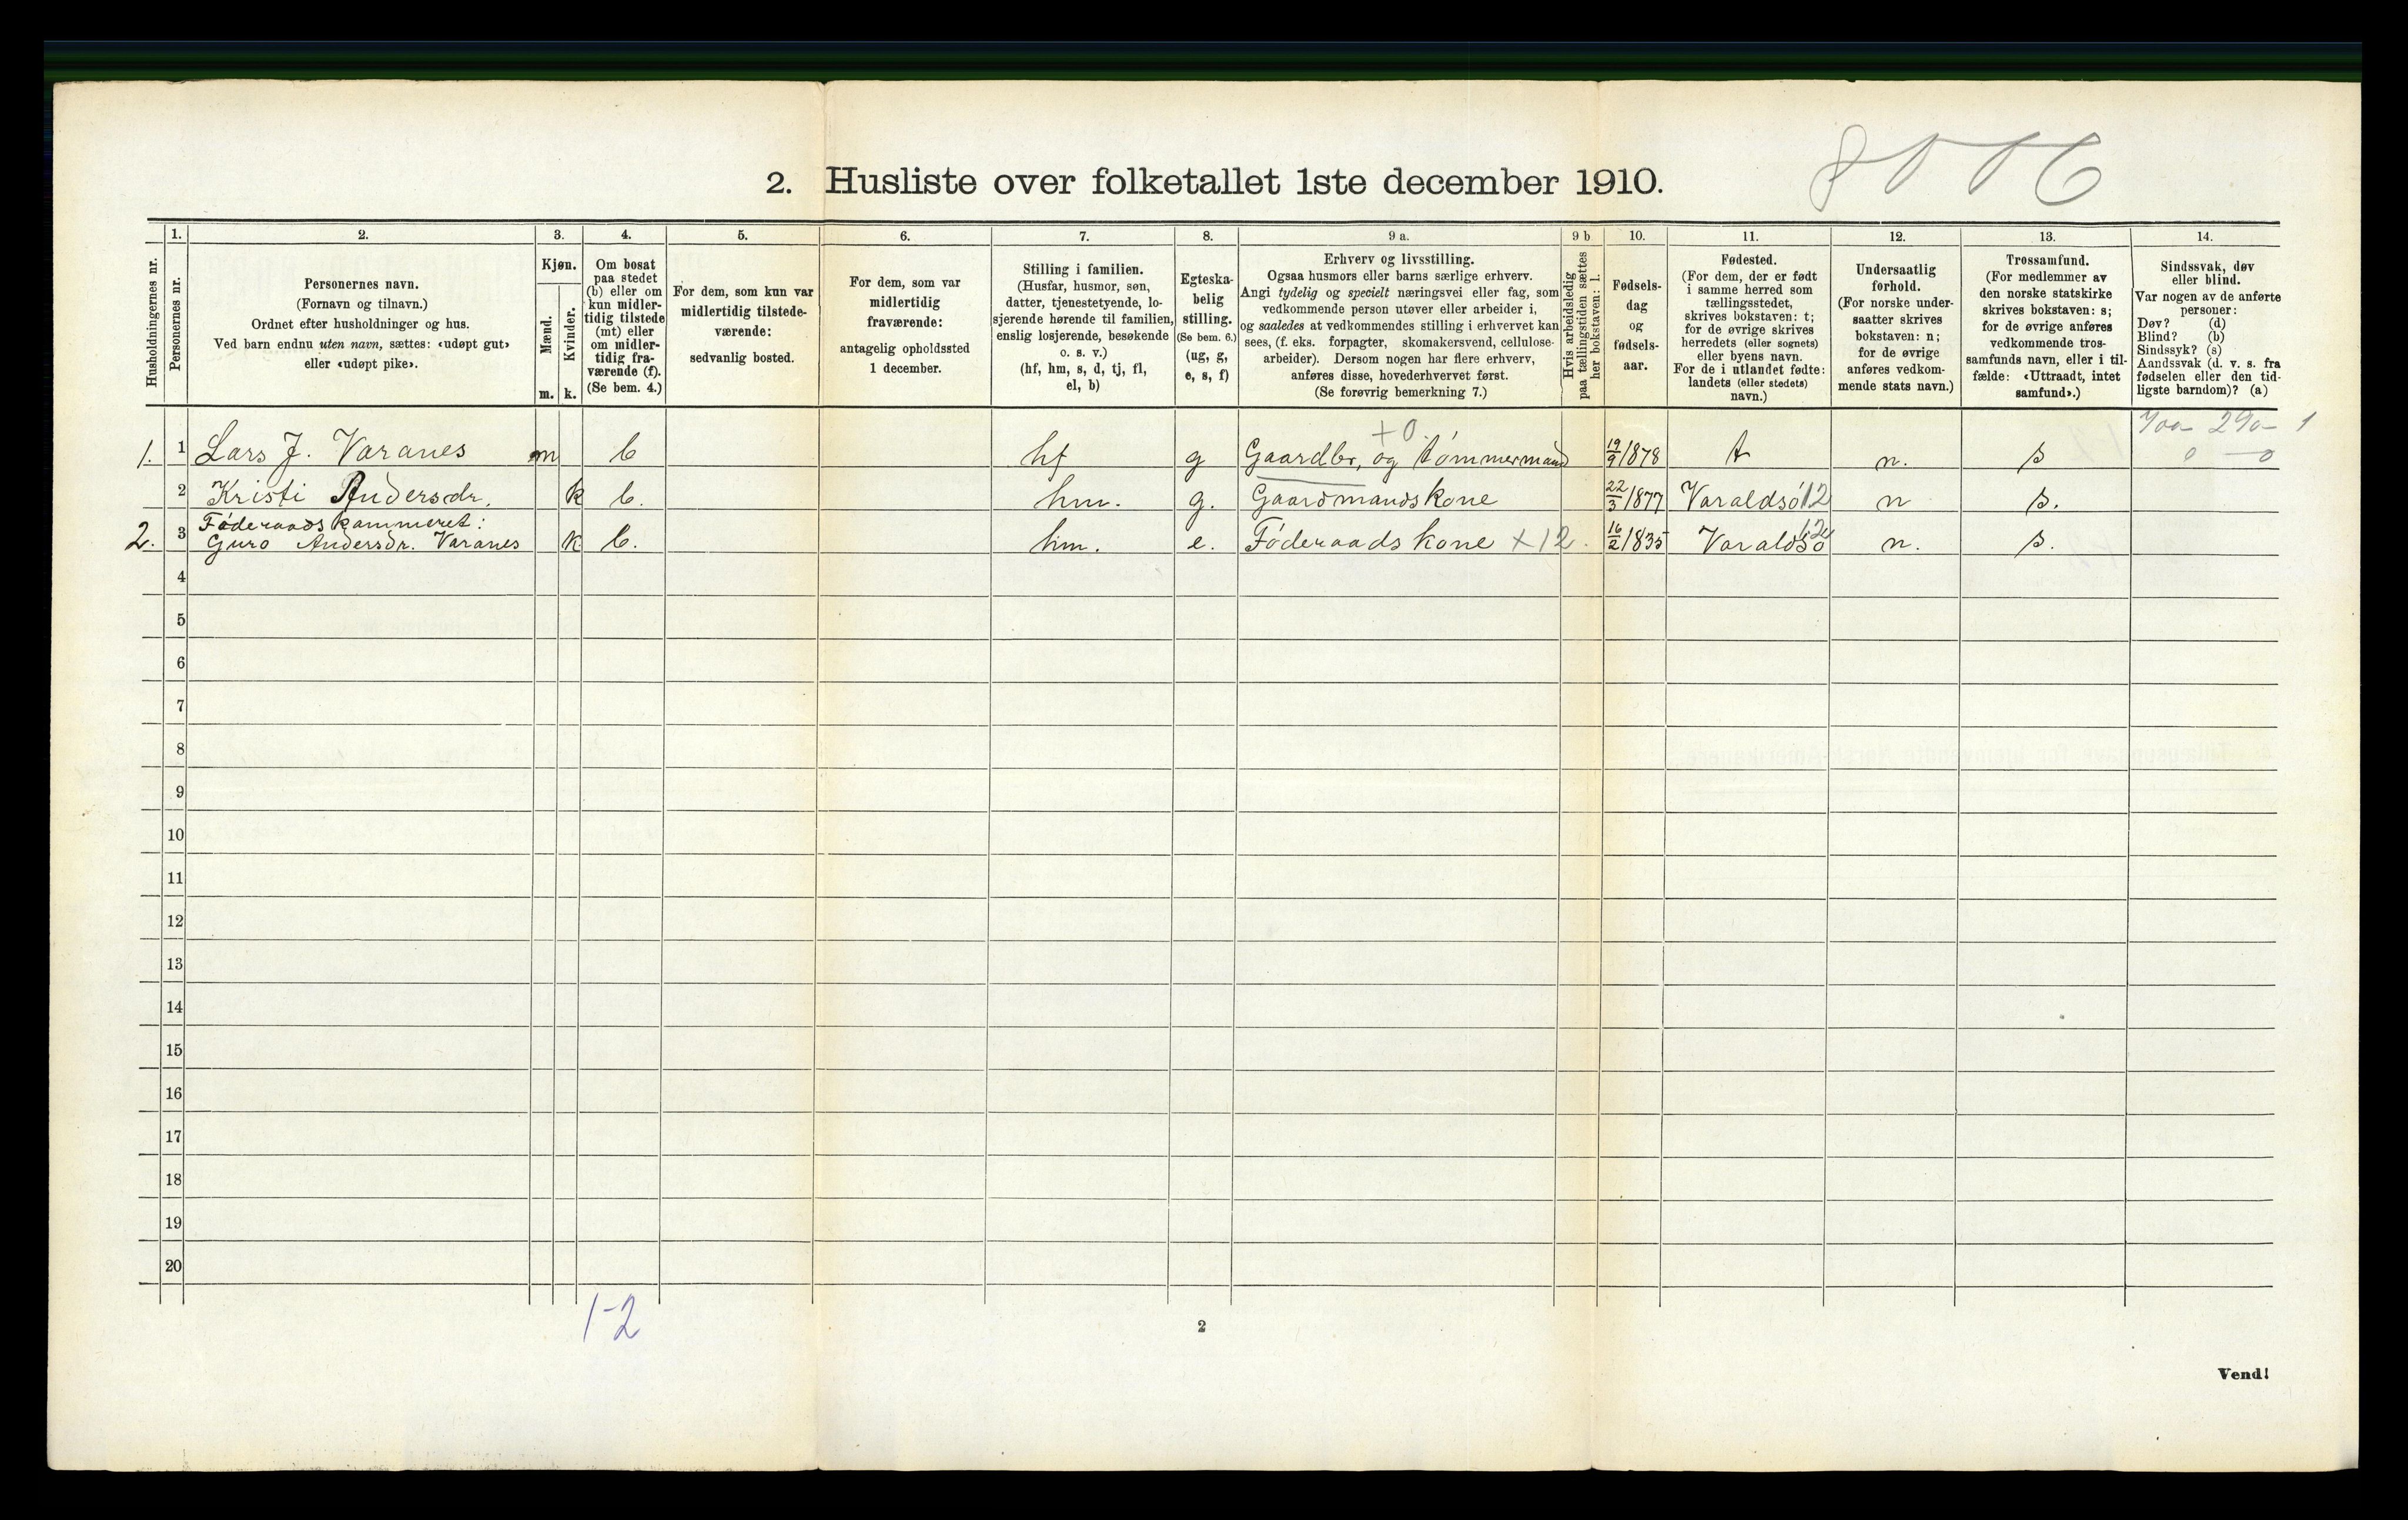 2. Husliste over folketallet 1ste december 1910.
Husholdningernes nr.
1.
Personernes nr.
2.
Personernes navn.
(Fornavn og tilnavn.)
Ordnet efter husholdninger og hus.
Ved barn endnu uten navn, sættes: «udøpt gut»
eller «udøpt pike».
3.
Kjøn.
Mænd.
Kvinder.
m. k.
4.
Om bosat
paa stedet
(b) eller om
kun midler-
tidig tilstede
(mt) eller
om midler-
tidig fra-
værende (f).
(Se bem. 4.)
5.
For dem, som kun var
midlertidig tilstede-
værende:
sedvanlig bosted.
6.
For dem, som var
midlertidig
fraværende:
antagelig opholdssted
1 december.
7.
Stilling i familien.
(Husfar, husmor, søn,
datter, tjenestetyende, lo-
sjerende hørende til familien,
enslig losjerende, besøkende
o. s. v.)
(hf, hm, s, d, tj, fl,
el, b)
8.
Egteska-
belig
stilling.
(Se bem. 6.)
(ug, g,
e, s, f)
9 a.
Erhverv og livsstilling.
Ogsaa husmors eller barns særlige erhverv.
Angi tydelig og specielt næringsvei eller fag, som
vedkommende person utøver eller arbeider i,
og saaledes at vedkommendes stilling i erhvervet kan
sees, (f. eks. forpagter, skomakersvend, cellulose-
arbeider). Dersom nogen har flere erhverv,
anføres disse, hovederhvervet først.
(Se forøvrig bemerkning 7.)
9 b
Hvis arbeidsledig
paa tællingstiden sættes
her bokstaven: l.
10.
Fødsels-
dag
og
fødsels-
aar.
11.
Fødested.
(For dem, der er født
i samme herred som
tællingsstedet,
skrives bokstaven: t;
for de øvrige skrives
herredets (eller sognets)
eller byens navn.
For de i utlandet fødte:
landets (eller stedets)
navn.)
12.
Undersaatlig
forhold.
(For norske under-
saatter skrives
bokstaven: n;
for de øvrige
anføres vedkom-
mende stats navn.)
13.
Trossamfund.
(For medlemmer av
den norske statskirke
skrives bokstaven: s;
for de øvrige anføres
vedkommende tros-
samfunds navn, eller i til-
fælde: «Uttraadt, intet
samfund».)
14.
Sindssvak, døv
eller blind.
Var nogen av de anførte
personer:
Døv? (d)
Blind? (b)
Sindssyk? (s)
Aandssvak (d. v. s. fra
fødselen eller den tid-
ligste barndom)? (a)
+0.
1. 1 Lars J. Varanes m b hf g Gaardbr, og tømmermand 19/9 1878 t n. s
0 — 0
2 Kristi Andersdr. k b. hm. g. Gaardmandskone 22/3 1877 Varaldsö 12 n s.
Føderaadskammeret:
2. 3 Guro Andersdr. Varanes k b. hm. e. Føderaadskone +12. 16/2 1835 Varaldsö 12 n. s.
4
5
6
7
8
9
10
11
12
13
14
15
16
17
18
19
20
1-2
2
Vend!